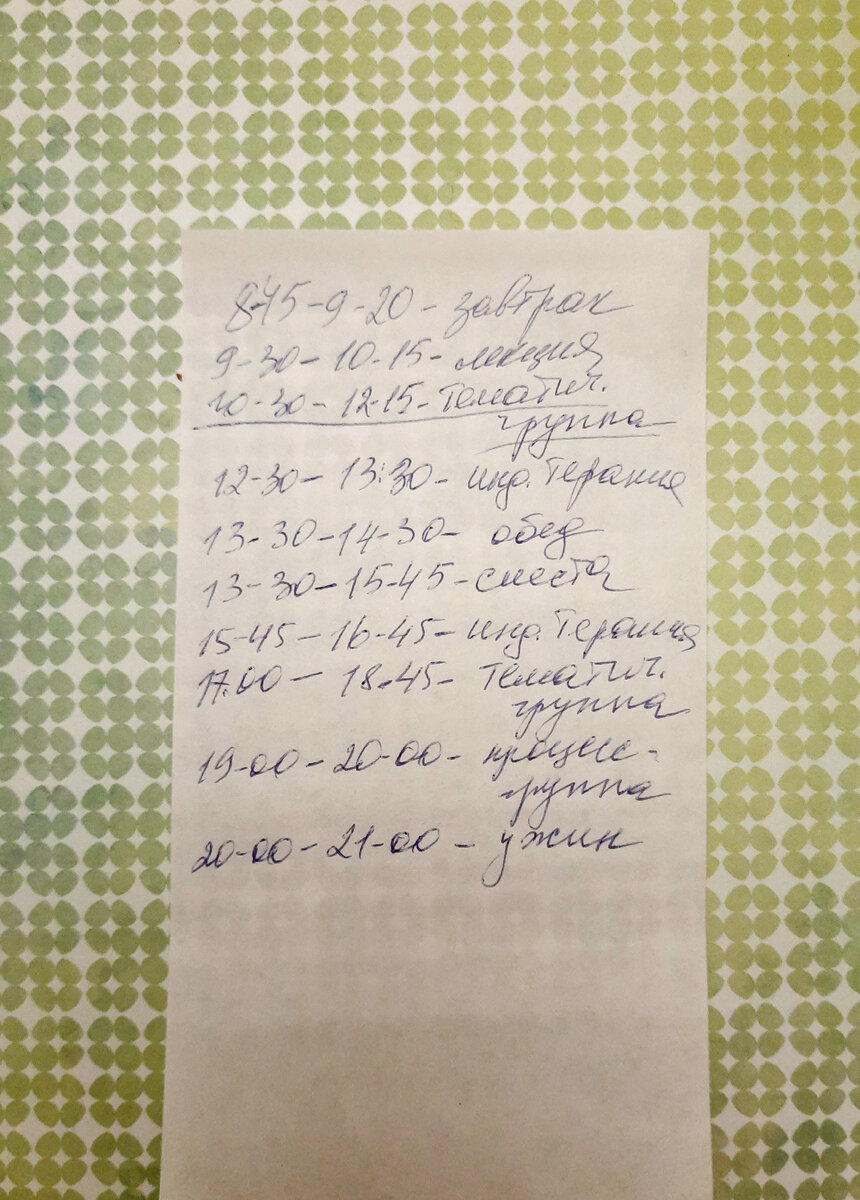 8-45-9-20- завтрак
9-30-10-15- лекция
10-30-12-15-Тематич.
группа
12-30-13:30- инд. Терапия
13-30-14-30- обед
13-30-15-45-сиеста
15-45-16-45-инд. Терапия
17.00-18-45- Тематич.
группа
19-00-20-00- процесс-
группа
20-00-21-00- ужин